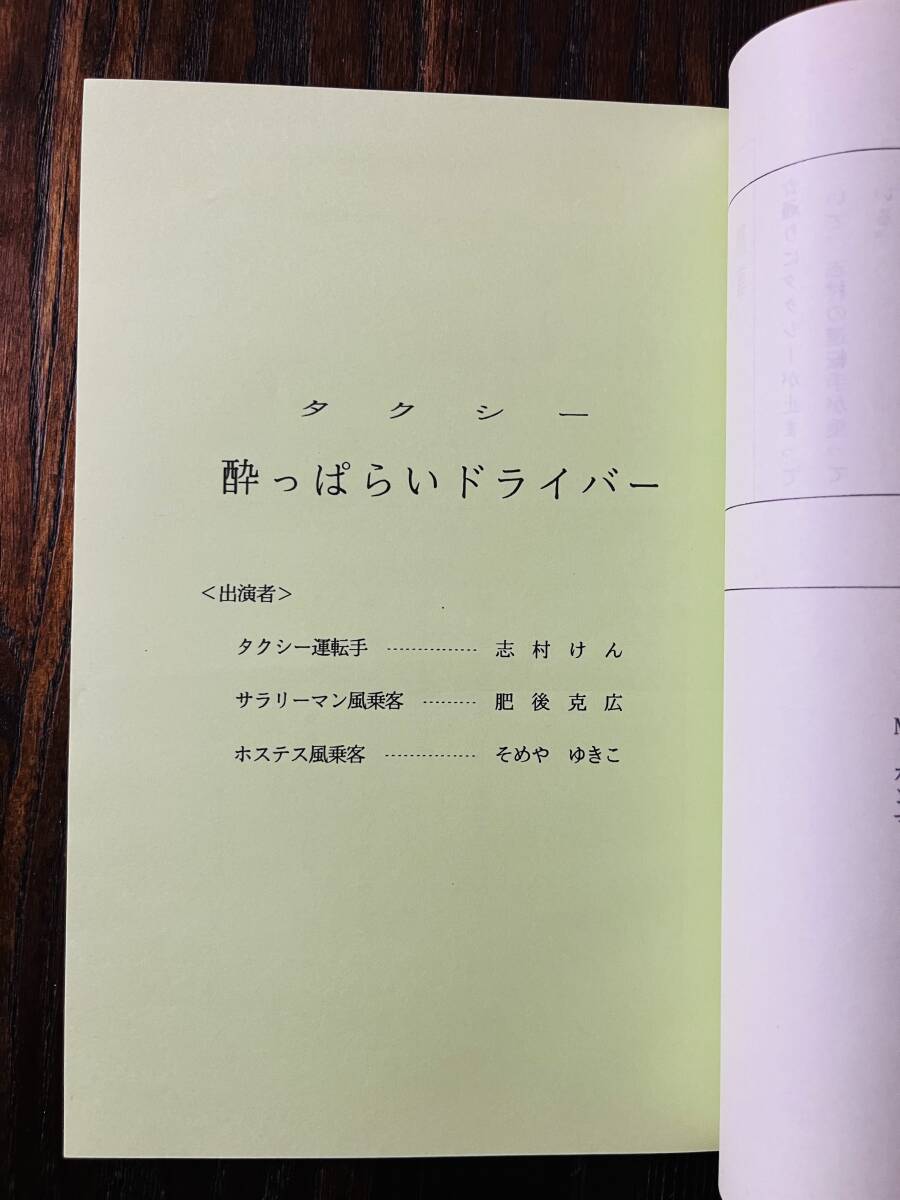 タクシー
酔っぱらいドライバー
＜出演者＞
タクシー運転手 ・・・・・・・・・・・・・・・ 志村けん
サラリーマン風乗客 ・・・・・・・・・ 肥後克広
ホステス風乗客 ・・・・・・・・・・・・・・・ そめや ゆきこ